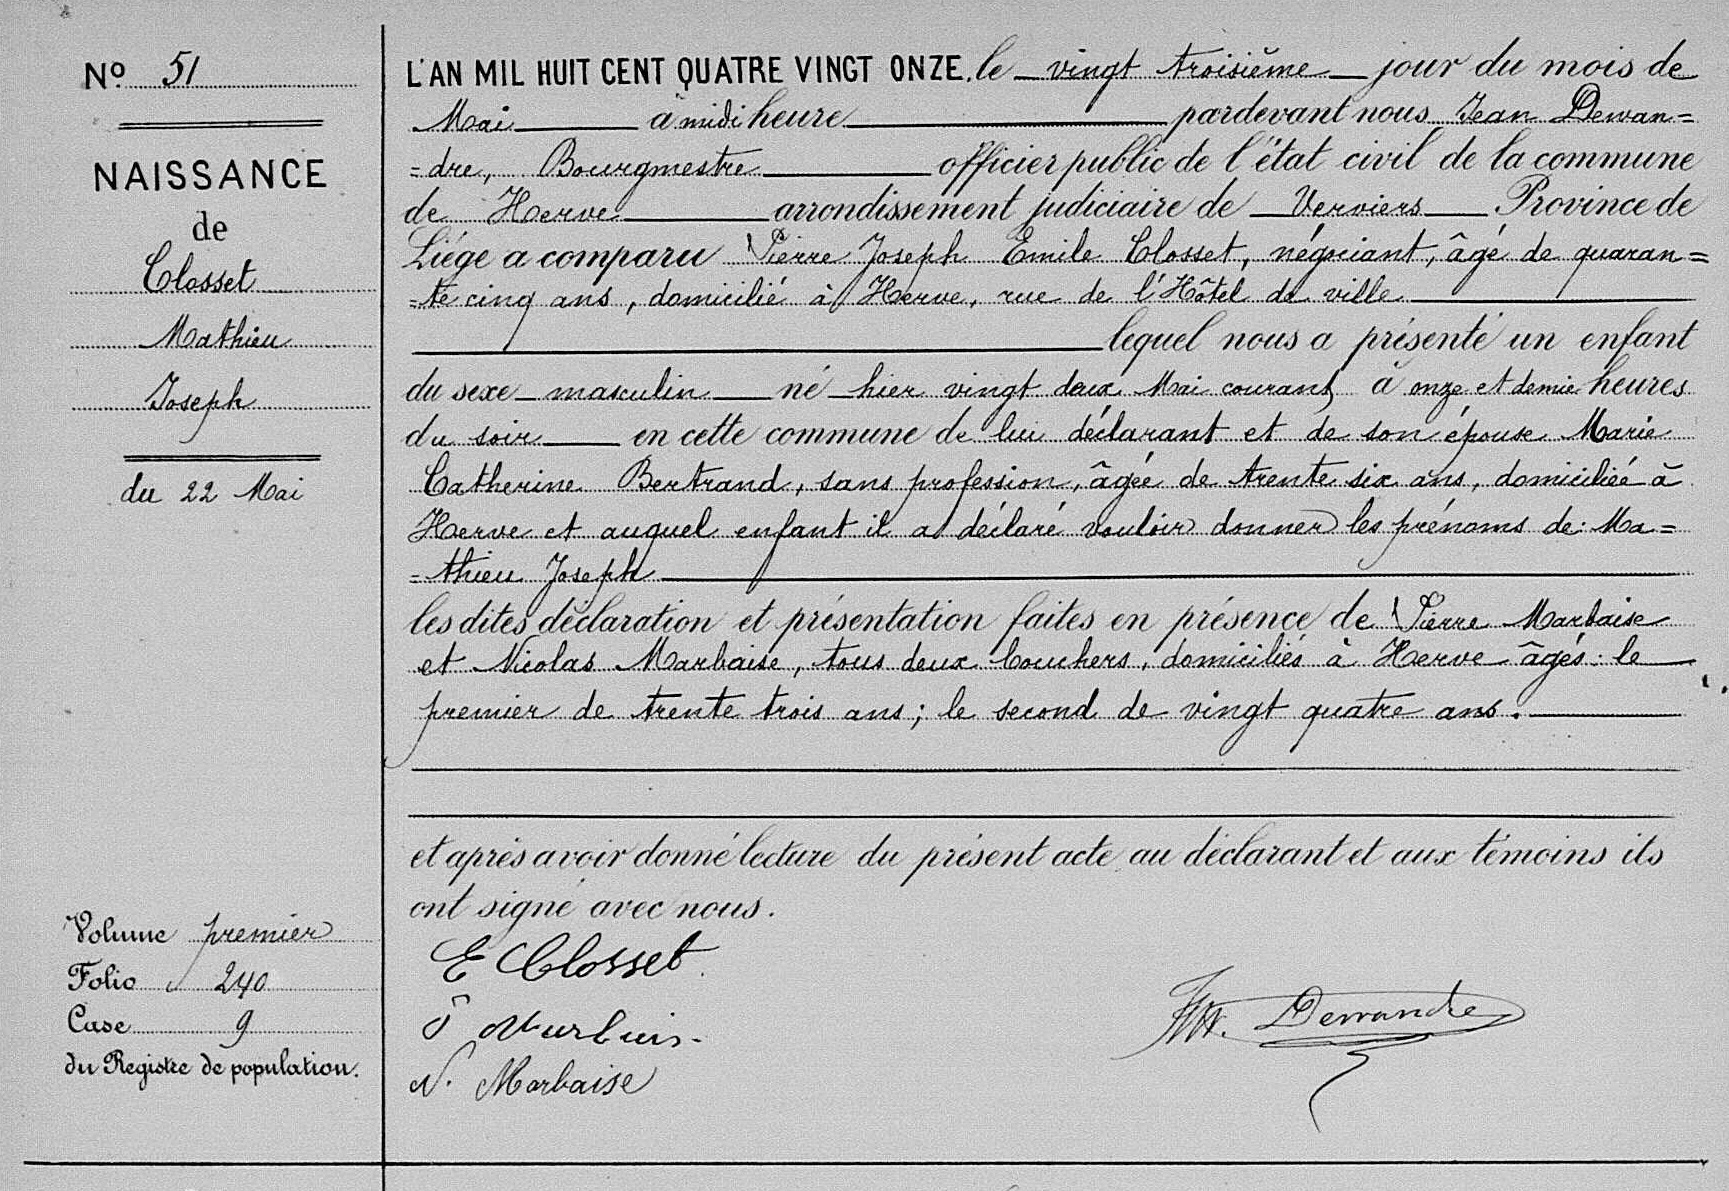 N° 51
NAISSANCE
de
Closset
Mathieu
Joseph
du 22 Mai
Volume premier
Folio 240
Case 9
du Registre de population.
L'AN MIL HUIT CENT QUATRE VINGT ONZE, le vingt troisième jour du mois de
Mai à midi heure pardevant nous Jean Dewan=
=dre, Bourgmestre officier public de l'état civil de la commune
de Herve arrondissement judiciaire de Verviers Province de
Liége a comparu Pierre Joseph Emile Closset, négociant, âgé de quaran=
=te cinq ans, domicilié à Herve, rue de l'Hôtel de ville
lequel nous a présenté un enfant
du sexe masculin né hier vingt deux Mai courant, à onze et demie heures
du soir en cette commune de lui déclarant et de son épouse Marie
Catherine Bertrand, sans profession, âgée de trente six ans, domiciliée à
Herve et auquel enfant il a déclaré vouloir donner les prénoms de: Ma=
=thieu Joseph
les dites déclaration et présentation faites en présence de Pierre Marbaise
et Nicolas Marbaise, tous deux bouchers, domiciliés à Herve âgés: le
premier de trente trois ans; le second de vingt quatre ans.
et après avoir donné lecture du présent acte au déclarant et aux témoins ils
ont signé avec nous.
E Closset
N. Marbaise
Dewandre